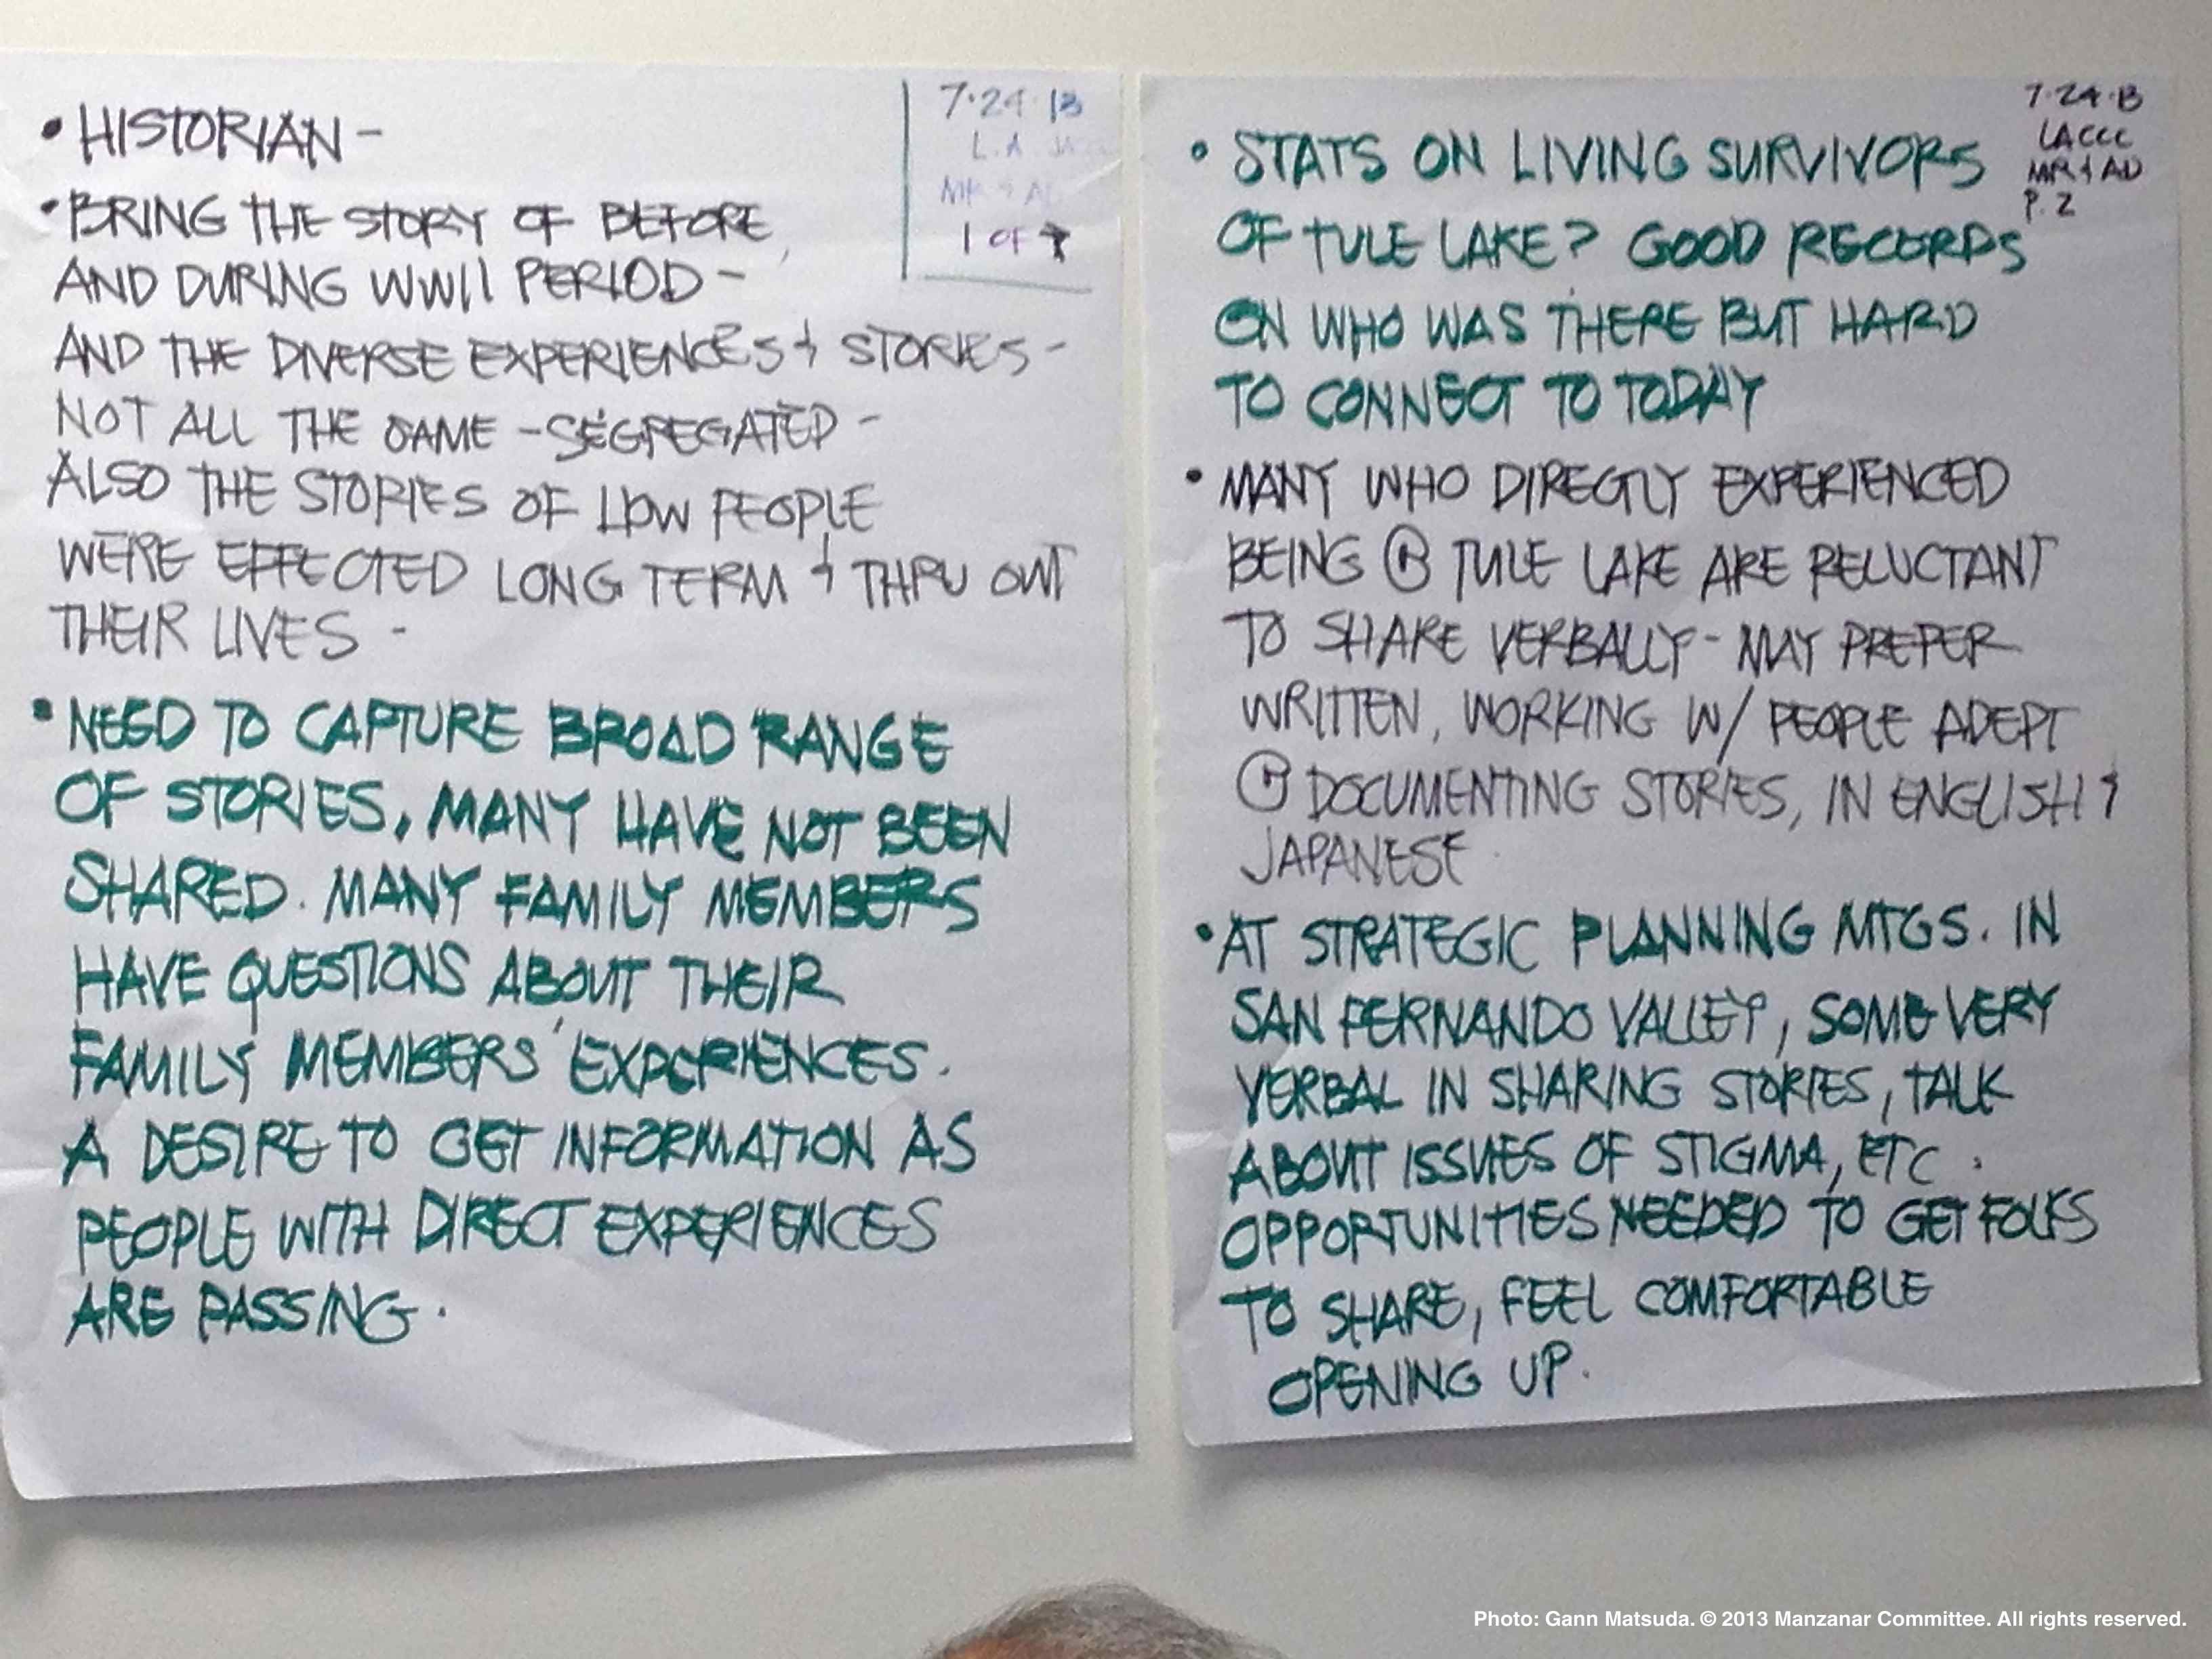 7·24·13
L.A.
1 OF
• HISTORIAN –
• BRING THE STORY OF BEFORE,
AND DURING WWII PERIOD –
AND THE DIVERSE EXPERIENCES & STORIES –
NOT ALL THE SAME – SEGREGATED –
ALSO THE STORIES OF HOW PEOPLE
WERE EFFECTED LONG TERM & THRU OUT
THEIR LIVES –
• NEED TO CAPTURE BROAD RANGE
OF STORIES. MANY HAVE NOT BEEN
SHARED. MANY FAMILY MEMBERS
HAVE QUESTIONS ABOUT THEIR
FAMILY MEMBERS' EXPERIENCES.
A DESIRE TO GET INFORMATION AS
PEOPLE WITH DIRECT EXPERIENCES
ARE PASSING.
7·24·13
LACCC
MR & AD
P. 2
• STATS ON LIVING SURVIVORS
OF TULE LAKE? GOOD RECORDS
ON WHO WAS THERE BUT HARD
TO CONNECT TO TODAY
• MANY WHO DIRECTLY EXPERIENCED
BEING @ TULE LAKE ARE RELUCTANT
TO SHARE VERBALLY – MAY PREFER
WRITTEN, WORKING W/ PEOPLE ADEPT
@ DOCUMENTING STORIES, IN ENGLISH &
JAPANESE.
• AT STRATEGIC PLANNING MTGS. IN
SAN FERNANDO VALLEY, SOME VERY
VERBAL IN SHARING STORIES, TALK
ABOUT ISSUES OF STIGMA, ETC.
OPPORTUNITIES NEEDED TO GET FOLKS
TO SHARE, FEEL COMFORTABLE
OPENING UP.
Photo: Gann Matsuda. © 2013 Manzanar Committee. All rights reserved.